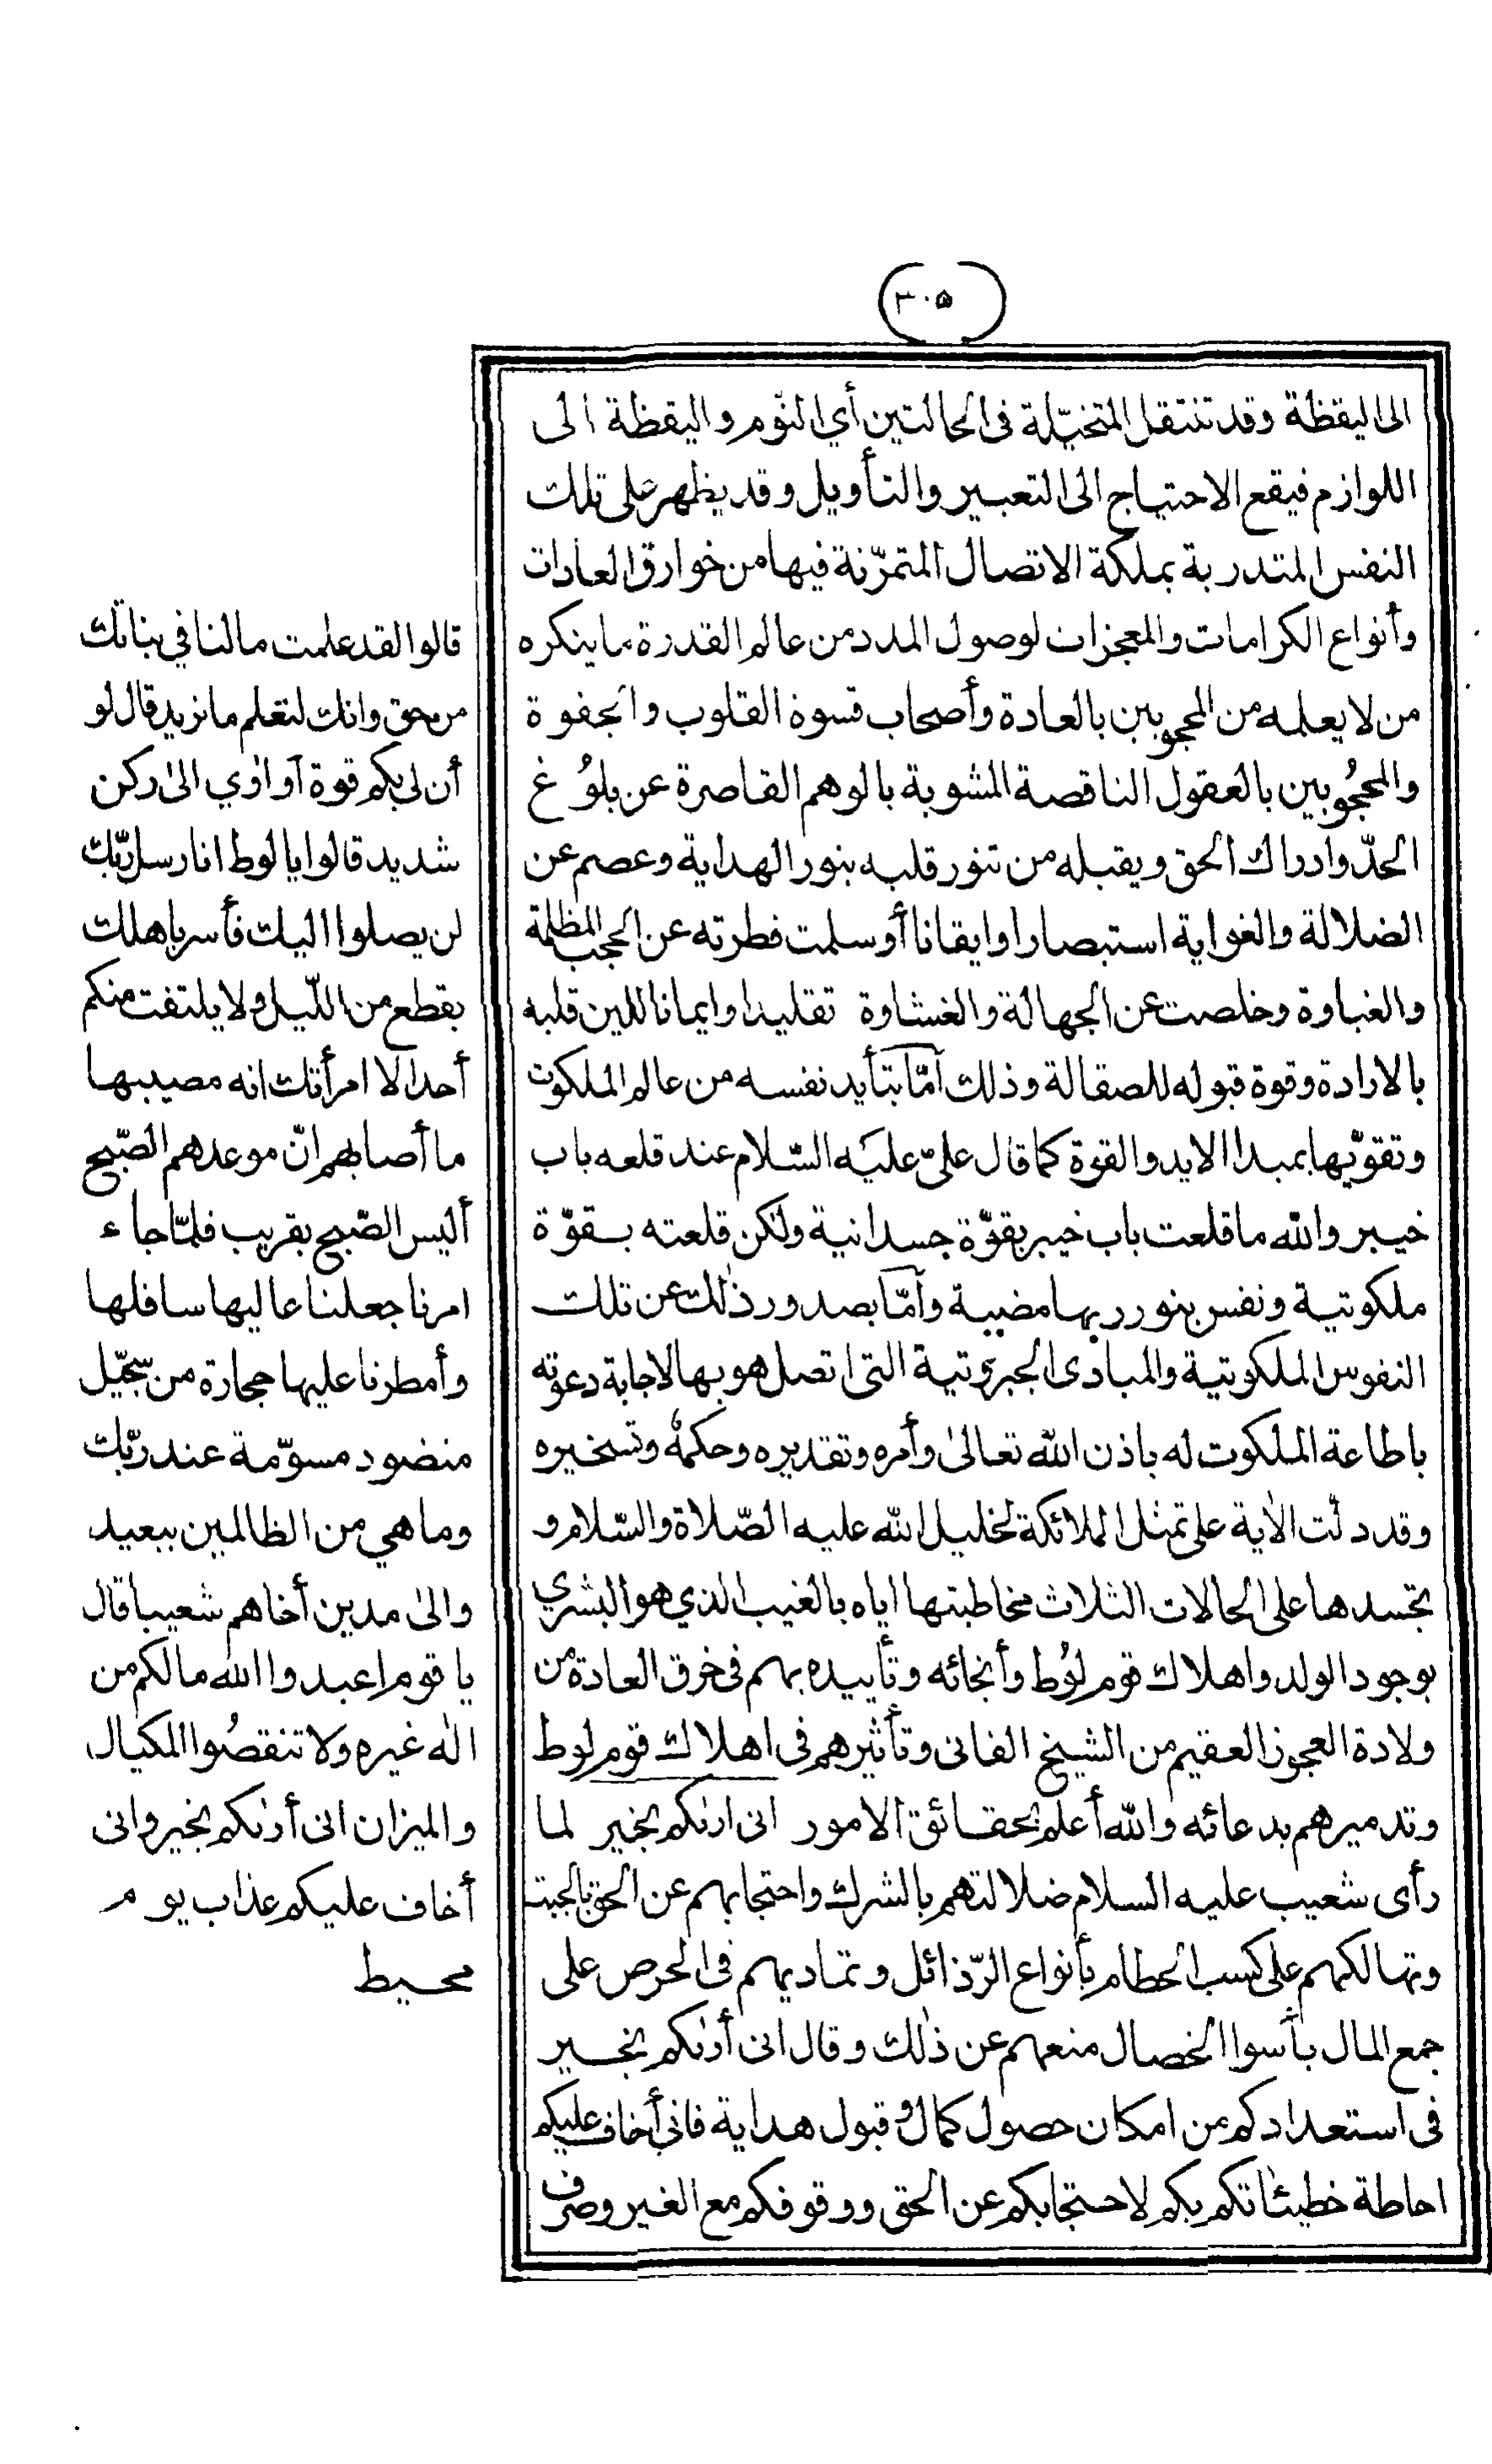 (٣٠٥)
الى اليقظة وقد تنتقل المتخيّلة فى الحالتين أي النّوم واليقظة الى
اللوازم فيقع الاحتياج الى التعبير والتأويل وقد يظهر على تلك
النفس المتدربة بملكة الاتصال المتمرّنة فيها من خوارق العادات
وأنواع الكرامات والمعجزات لوصول المدد من عالم القدرة ما ينكره
من لا يعلمه من المحجوبين بالعادة وأصحاب قسوة القلوب والجفوة
والمحجُوبين بالعقول الناقصة المشوبة بالوهم القاصرة عن بلوُغ
الحدّ وادراك الحق ويقبله من تنور قلبه بنور الهداية وعصم عن
الضلالة والغواية استبصارا وايقانا أو سلمت فطرته عن الحجب المظلمة
والغباوة وخلصت عن الجهالة والغشاوة تقليدا وايمانا للين قلبه
بالارادة وقوة قبوله للصقالة وذلك امّا بتأيد نفسه من عالم الملكوت
وتقوّيها بمبدا الايد والقوّة كما قال علىّ عليَه السّلام عند قلعه باب
خيبر والله ما قلعت باب خيبر بقوّة جسدانية ولكن قلعته بقوّة
ملكوتية ونفس بنور ربها مضيية وامّا بصدور ذٰلك عن تلك
النفوس الملكوتية والمبادى الجبروتية التى اتصل هو بها لاجابة دعوته
باطاعة الملكوت له باذن الله تعالىٰ وأمره وتقديره وحكمه وتسخيره
وقد دلّت الاٰية على تمثل الملائكة لخليل الله عليه الصّلاة والسّلام و
تجسدها على الحالات الثلاث مخاطبتها اياه بالغيب الذي هو البشري
بوجود الولد واهلاك قوم لوُط وأنجائه وتأييده بهم فى خرق العادة من
ولادة العجوز العقيم من الشيخ الفانى وتأثيرهم فى اهلاك قوم لوط
وتدميرهم بدعائه والله أعلم بحقائق الامور انى ارٰىكم بخير لما
رأى شعيب عليه السلام ضلالتهم بالشرك واحتجابهم عن الحق بالجبت
وتهالكهم على كسب الحطام بأنواع الرّذائل وتماديهم فى الحرص على
جمع المال بأسوا الخصال منعهم عن ذٰلك وقال انى أرٰىكم بخير
فى استعدادكم من امكان حصول كمال وقبول هداية فانى أخاف عليكم
احاطة خطيئاتكم بكم لاحتجابكم عن الحق ووقوفكم مع الغير وصرف
قالوا لقد علمت مالنا في بناتك
من حق وانك لتعلم ما نريد قال لو
أن لى بكم قوة أو اٰوي الىٰ ركن
شديد قالوا يا لوط انا رسل ربّك
لن يصلوا اليك فأسر باهلك
بقطع من اللّيل ولا يلتفت منكم
أحد الا امرأتك انه مصيبها
ما أصابهم انّ موعدهم الصّبح
أليس الصّبح بقريب فلمّا جاء
امرنا جعلنا عاليها سافلها
وأمطرنا عليها حجارة من سجّيل
منضود مسوّمة عند ربّك
وما هي من الظالمين ببعيد
والىٰ مدين أخاهم شعيبا قال
يا قوم اعبدوا الله مالكم من
الٰه غيره ولا تنقصُوا المكيال
والميزان انى أرٰىكم بخير وانى
أخاف عليكم عذاب يوم
محيط